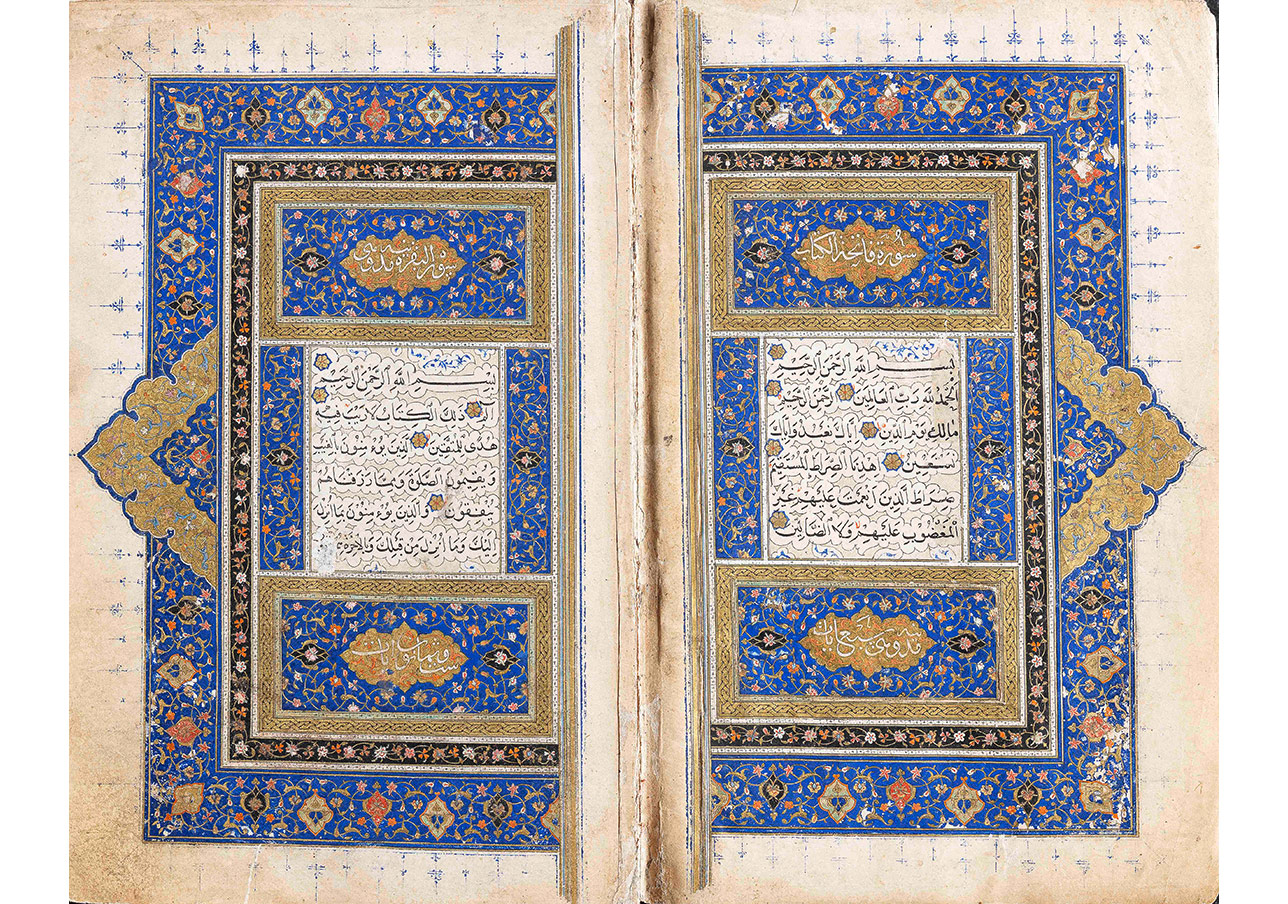 سورة فاتحة الكتاب
بسم الله الرحمن الرحيم
الحمد لله رب العالمين الرحمن الرحيم
مالك يوم الدين اياك نعبد واياك
نستعين اهدنا الصراط المستقيم
صراط الذين أنعمت عليهم غير
المغضوب عليهم ولا الضالين
سبع ايات
سورة البقرة
بسم الله الرحمن الرحيم
الم ذلك الكتاب لا ريب فيه
هدى للمتقين الذين يؤمنون بالغيب
ويقيمون الصلوة ومما رزقناهم
ينفقون والذين يؤمنون بما انزل
اليك وما أنزل من قبلك وبالاخرة